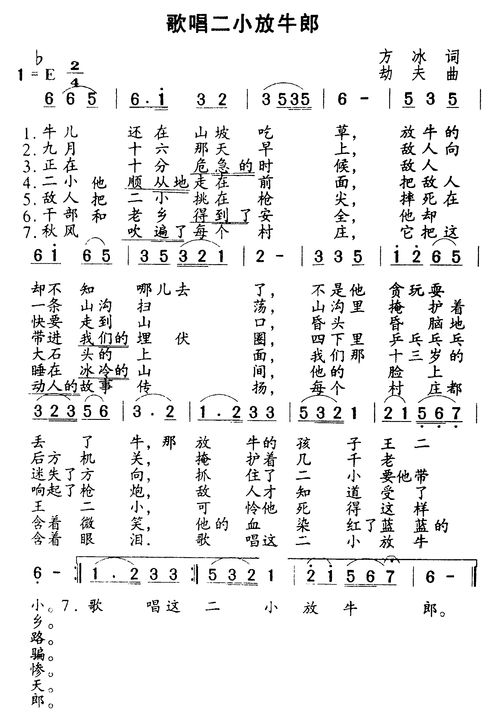 歌唱二小放牛郎
♭
1=E 2/4
方 冰 词
劫 夫 曲
6 6 5 | 6 . 1 3 2 | 3 5 3 5 | 6 - | 5 3 5 |
1.牛儿 还在山坡吃 草, 放牛的
2.九月 十六那天早 上, 敌人向
3.正在 十分危急的时 候, 敌人
4.二小他 顺从地走在前 面, 把敌人
5.敌人把 二小挑在枪 尖, 摔死在
6.干部和 老乡得到了安 全, 他却
7.秋风 吹遍了每个村 庄, 它把这
6 1 6 5 | 3 5 3 2 1 | 2 - | 3 3 5 3 5 | 1 2 6 5 |
却不知 哪儿去 了, 不是他 贪玩耍
一条山沟扫 荡, 山沟里 掩护着
快要走到山 口, 昏头 昏脑地
带进我们的埋伏 圈, 四下里 乒乓乒乓
大石头的上 面, 我们那 十三岁的
睡在冰冷的山 间, 他的 脸上
动人的故事传 扬, 每个 村庄都
3 2 3 5 6 | 3 . 2 | 1 . 2 3 3 | 5 3 2 1 | 2 1 5 6 7 |
丢了 牛,那 放牛的 孩子王二
后方机 关, 掩护着 几千老
迷失了方 向, 抓住了 二小要他带
响起了枪 炮, 敌人才 知道受了
王二 小, 可怜他 死得这样
含着微 笑, 他的血 染红了蓝蓝的
含着眼 泪. 歌唱这 二小放牛
6 - :‖ 1 . 2 3 3 | 5 3 2 1 | 2 1 5 6 7 | 6 - ‖
小。7.歌 唱这 二 小 放 牛 郎。
乡。
路。
骗。
惨。
天。
郎。